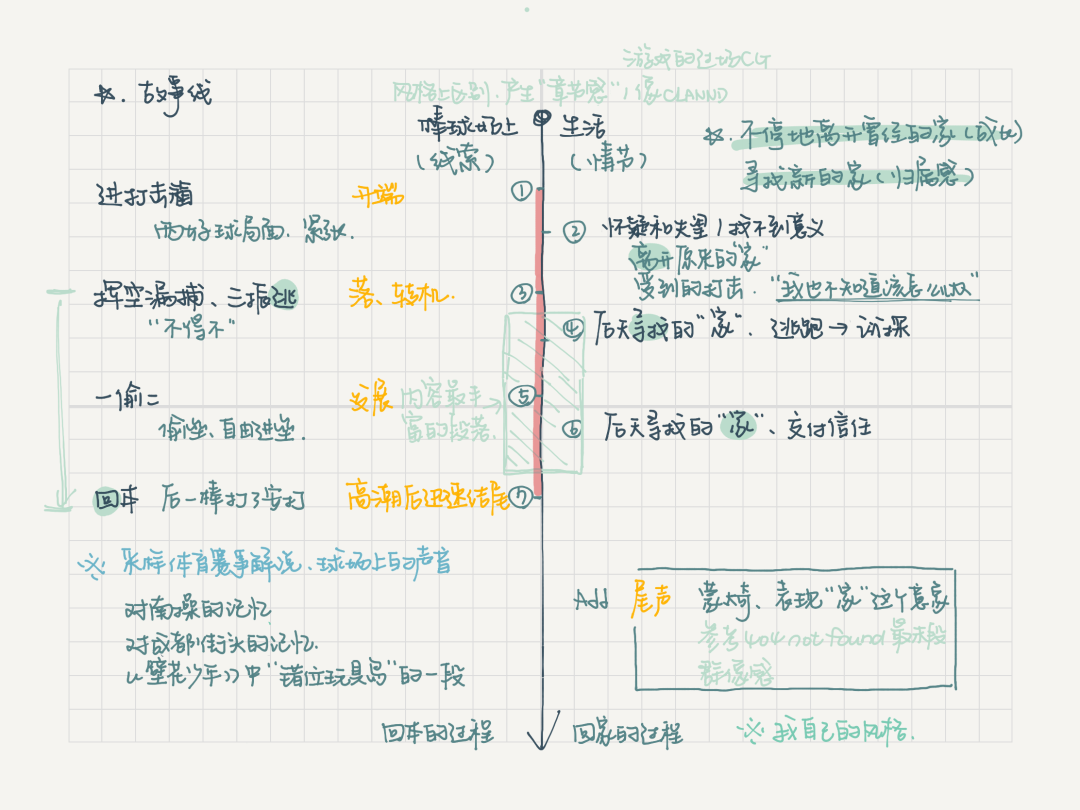 游戏的过场CG
☆. 故事线
风格上区别.产生"章节感"/像CLANND
棒球场上
(线索)
生活
(情节)
☆. 不停地离开曾经的家(成长)
寻找新的家(归属感)
进打击箱
开端
①
两好球局面.紧张.
② 怀疑和失望/找不到意义
离开原来的"家"
受到的打击."我也不知道该怎么做"
挥空漏捕、三振逃
落、转机.
③
"不得不"
④ 后天寻找的"家". 逃跑→试探
一偷二
发展
内容最丰
富的段落.
⑤
偷垒、自由进垒.
⑥ 后天寻找的"家"、交付信任
回本 后一棒打了安打
高潮后迅速结尾
⑦
※ 采样体育赛事解说、球场上的声音
对南操的记忆
对成都街头的记忆.
《壁花少年》中"错位玩具岛"的一段
Add 尾声
蒙太奇、表现"家"这个意象
参考404 not found 最末段
群像感
回本的过程
回家的过程
※ 我自己的风格.